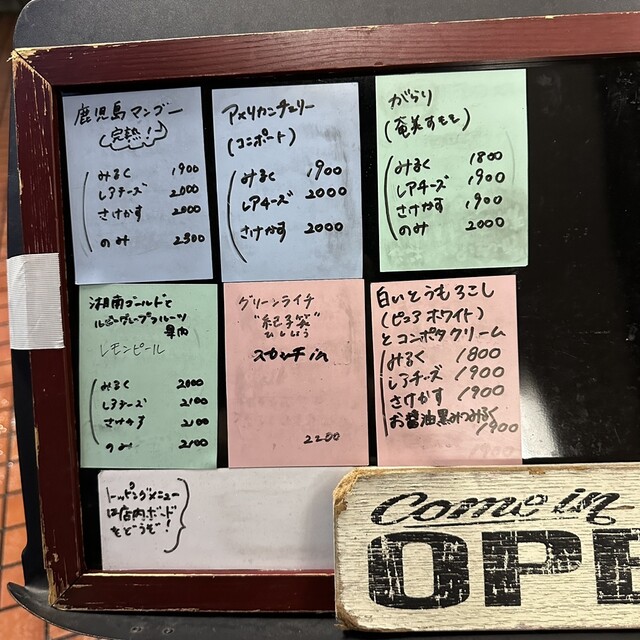 鹿児島マンゴー
(完熟!)
みるく 1900
レアチーズ 2000
さけかす 2000
のみ 2300
アメリカンチェリー
(コンポート)
みるく 1900
レアチーズ 2000
さけかす 2000
がらり
(奄美すもも)
みるく 1800
レアチーズ 1900
さけかす 1900
のみ 2000
湘南ゴールドと
ルビーグレープフルーツ
果肉
レモンピール
みるく 2000
レアチーズ 2100
さけかす 2100
のみ 2100
グリーンライチ
"妃子笑"
ひしょう
スカンチ in
2200
白いとうもろこし
(ピュアホワイト)
とコンポタクリーム
みるく 1800
レアチーズ 1900
さけかす 1900
お醤油黒みつみるく
1900
トッピングメニュー
は店内ボード
をどうぞ!
Come in
OPE